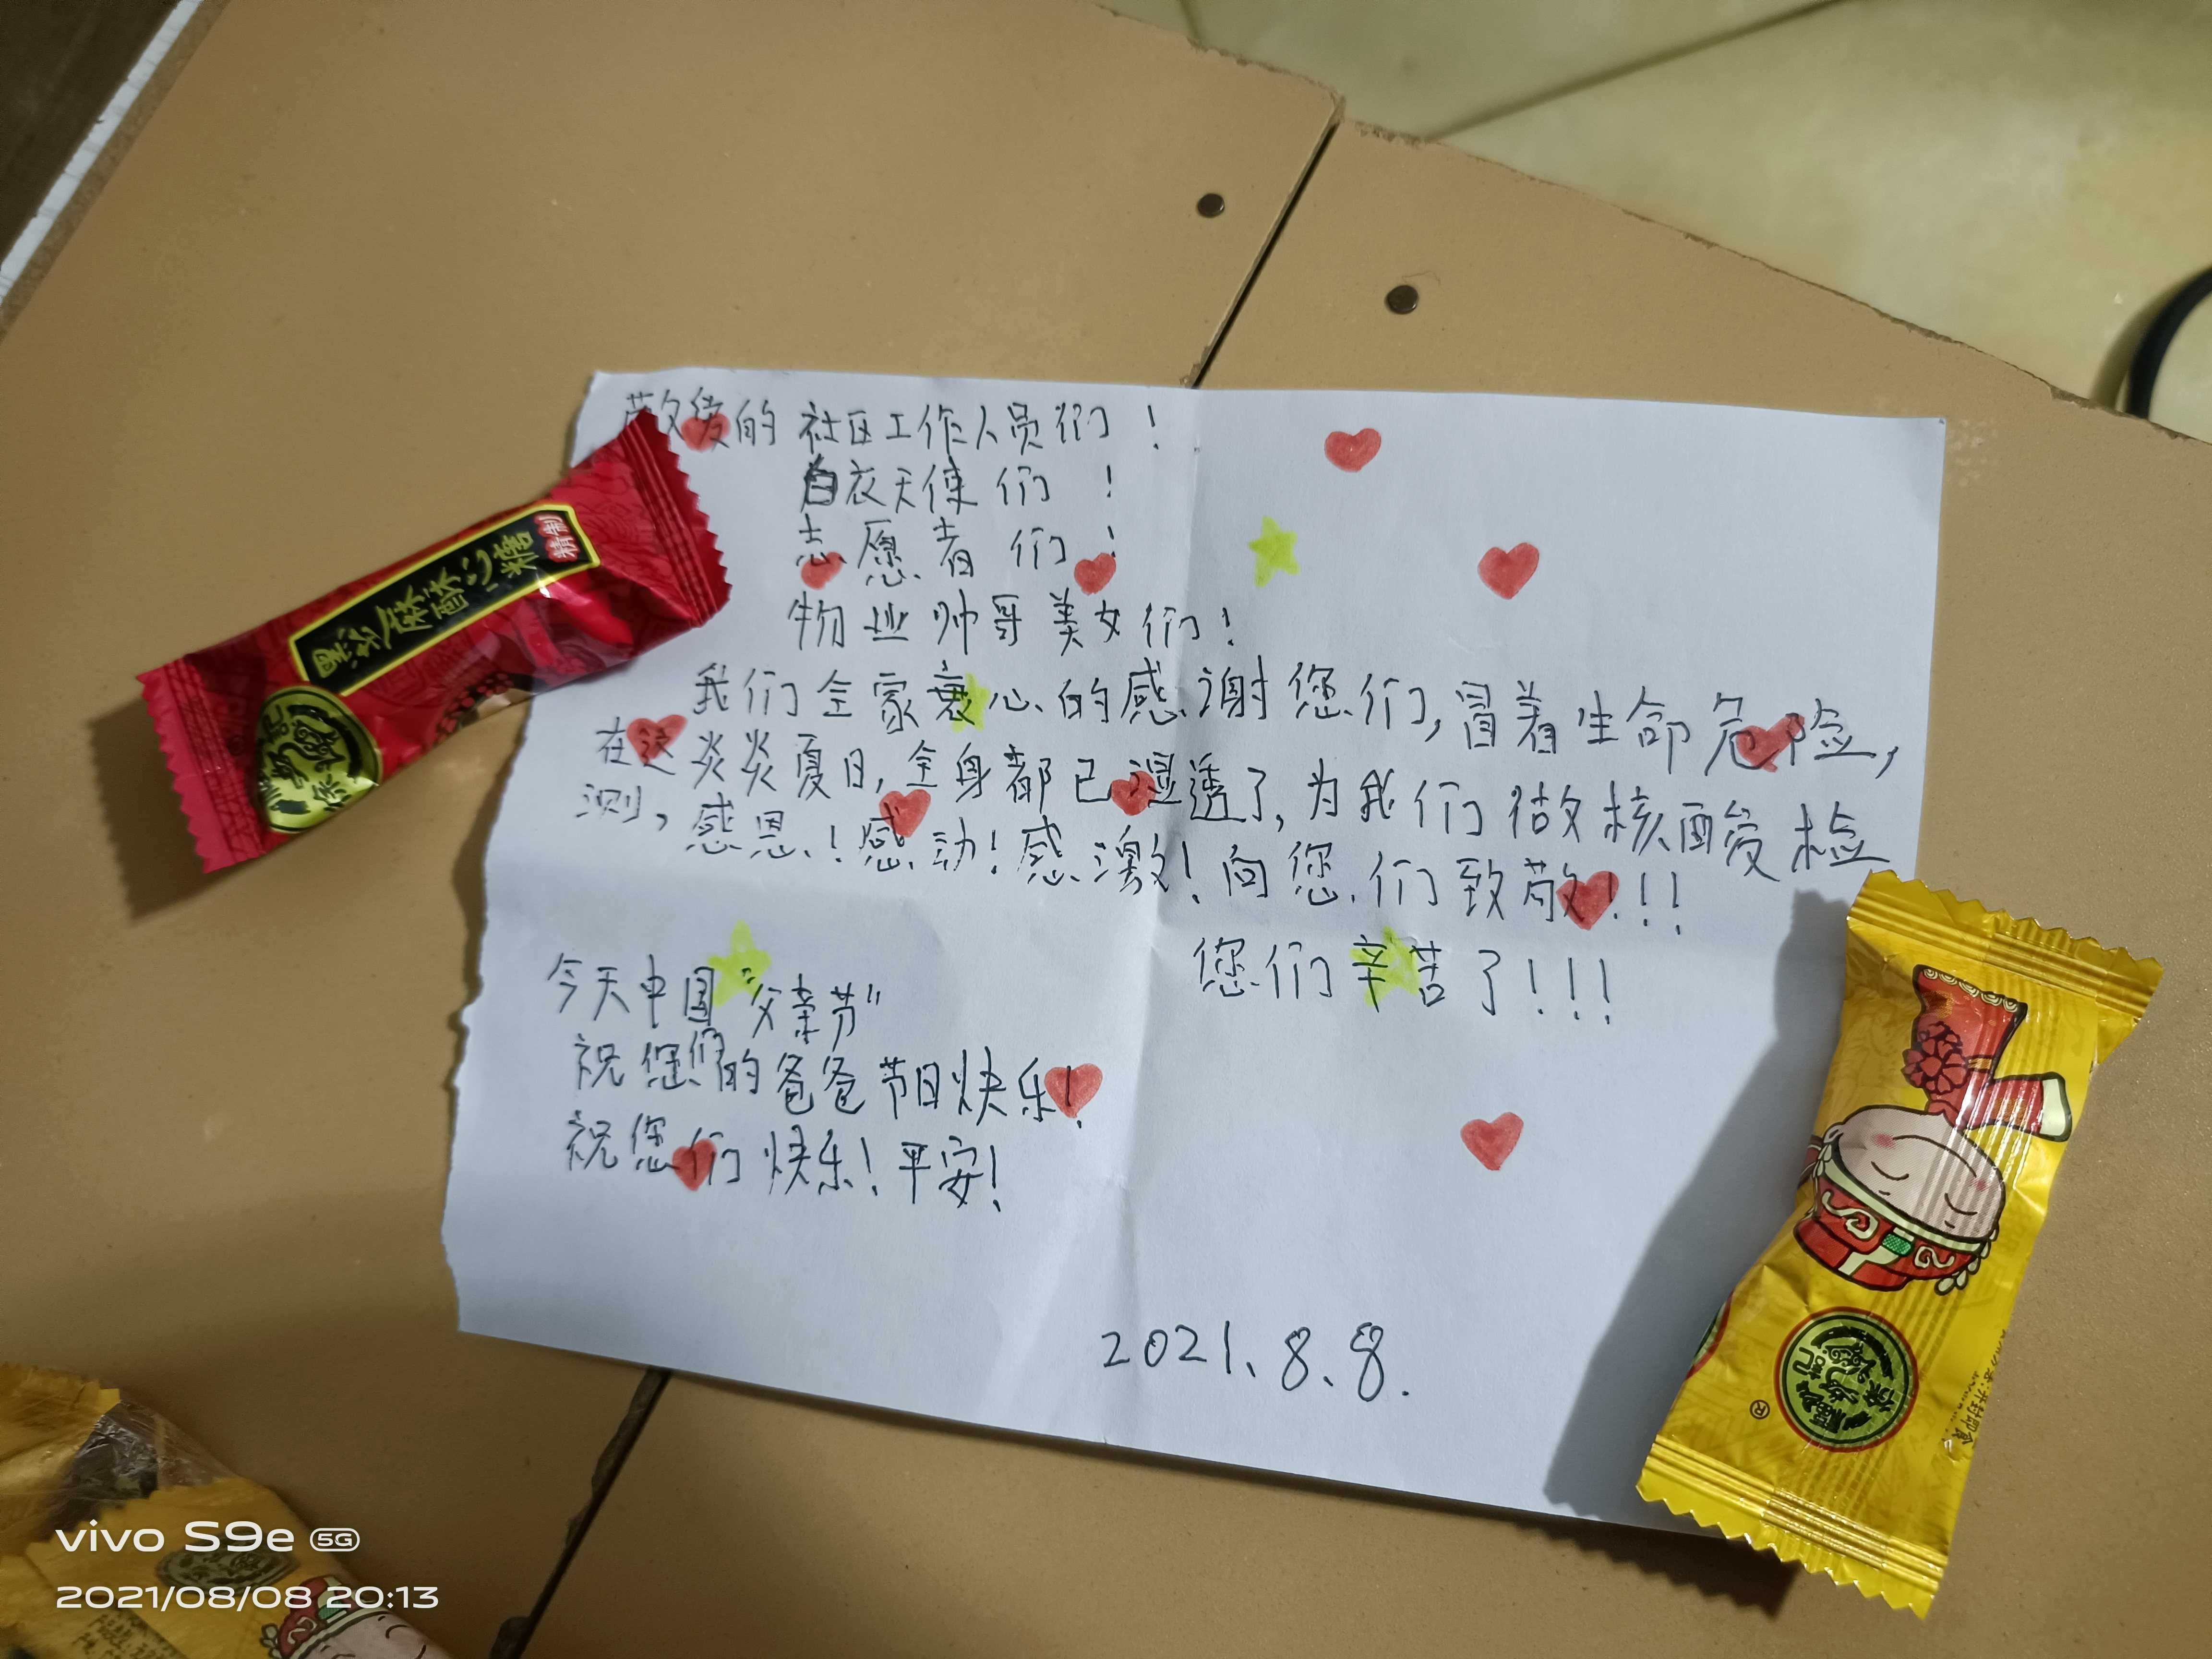 敬爱的社区工作人员们！
白衣天使们！
志愿者们！
物业帅哥美女们！
我们全家衷心的感谢您们,冒着生命危险,
在这炎炎夏日,全身都已湿透了,为我们做核酸检
测,感恩!感动!感激!向您们致敬!!!
您们辛苦了!!!
今天中国“父亲节”
祝您们的爸爸节日快乐!
祝您们快乐!平安!
2021.8.8.
黑芝麻酥心糖
精制
徐福记
徐福记
®
vivo S9e 5G
2021/08/08 20:13